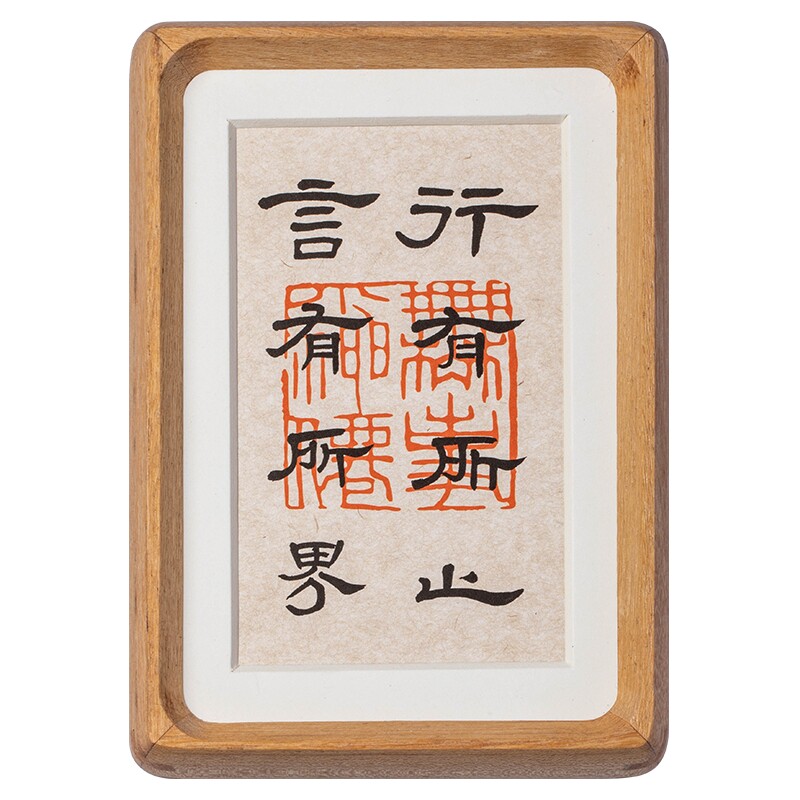 行有所止
言有所界
無事